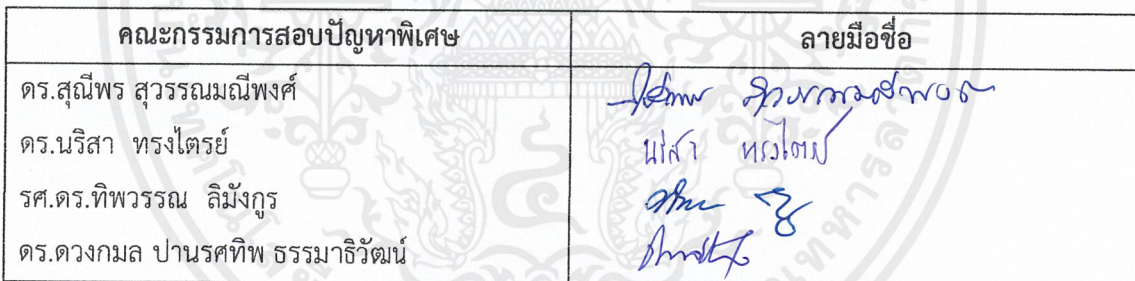 คณะกรรมการสอบปัญหาพิเศษ ลายมือชื่อ
ดร.สุณีพร สุวรรณมณีพงศ์
ดร.นริสา ทรงไตรย์ นริสา ทรงไตรย์
รศ.ดร.ทิพวรรณ ลิมังกูร
ดร.ดวงกมล ปานรศทิพ ธรรมาธิวัฒน์